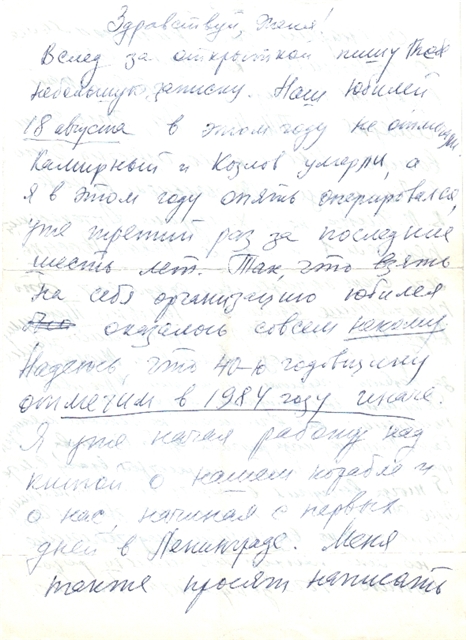 Здравствуй, Женя!
Вслед за открыткой пишу Тебе
небольшую записку. Наш юбилей
18 августа в этом году не отмечали.
Камирный и Козлов умерли, а
я в этом году опять оперировался,
уже третий раз за последние
шесть лет. Так, что взять
на себя организацию юбилея
оказалось совсем некому.
Надеюсь, что 40-ю годовщину
отметим в 1984 году иначе.
Я уже начал работу над
книгой о нашем корабле и
о нас, начиная с первых
дней в Ленинграде. Меня
также просят написать